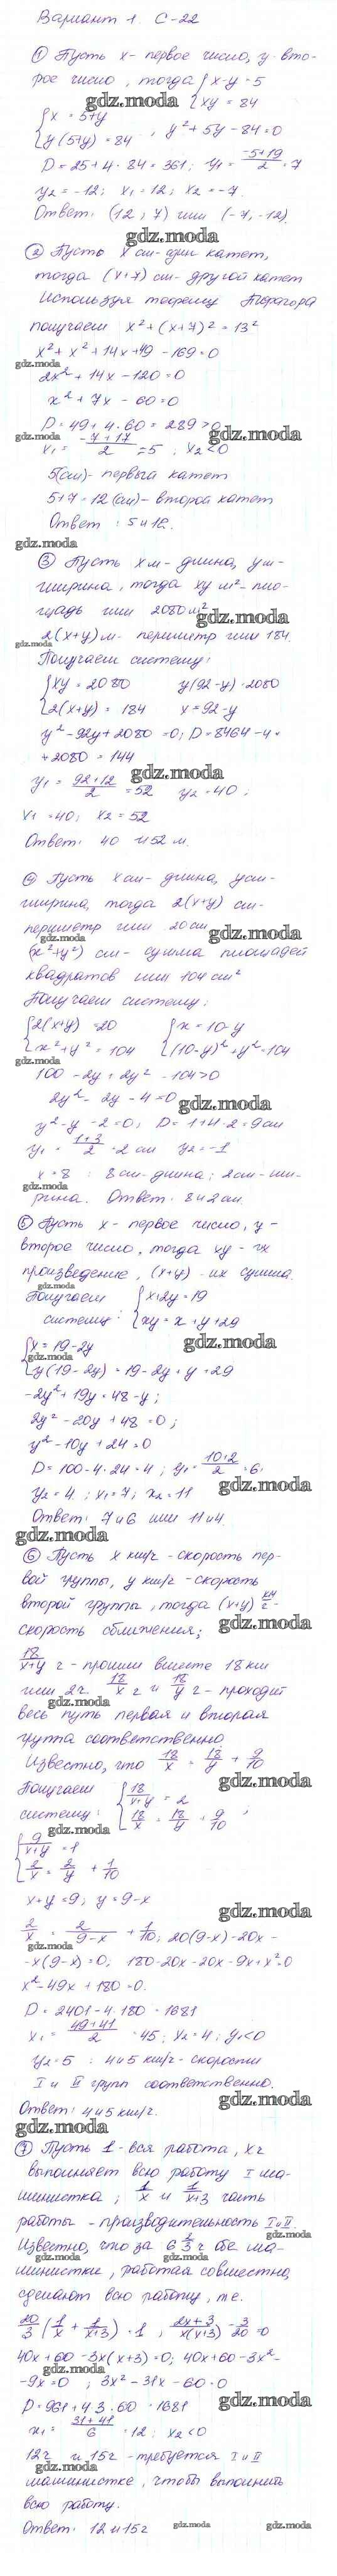 Вариант 1. С-22
① Пусть x - первое число, y - вто-
рое число, тогда { x-y = 5
xy = 84
{ x = 5+y
y(5+y) = 84 , y² + 5y - 84 = 0
gdz.moda
D = 25 + 4 · 84 = 361; y₁ = (-5+19)/2 = 7
y₂ = -12; x₁ = 12; x₂ = -7.
Ответ: (12; 7) или (-7; -12).
gdz.moda
② Пусть x см - один катет,
тогда (x+7) см - другой катет
Используя теорему Пифагора
получаем x² + (x+7)² = 13²
x² + x² + 14x + 49 - 169 = 0
gdz.moda
2x² + 14x - 120 = 0
x² + 7x - 60 = 0
D = 49 + 4 · 60 = 289 > 0
gdz.moda
gdz.moda
x₁ = (-7+17)/2 = 5 ; x₂ < 0
5(см) - первый катет
5+7 = 12 (см) - второй катет
Ответ : 5 и 12.
gdz.moda
③ Пусть x м - длина, y м -
ширина, тогда xy м² - пло-
щадь или 2080 м²
gdz.moda
2(x+y) м - периметр или 184.
gdz.moda
Получаем систему:
{ xy = 2080 y(92-y) = 2080
2(x+y) = 184 x = 92-y
y² - 92y + 2080 = 0; D = 8464 - 4 ·
· 2080 = 144
gdz.moda
y₁ = (92+12)/2 = 52 y₂ = 40 ;
x₁ = 40; x₂ = 52
Ответ: 40 и 52 м.
④ Пусть x см - длина, y см -
ширина, тогда 2(x+y) см -
периметр или 20 см
gdz.moda
gdz.moda
(x² + y²) см - сумма площадей
квадратов или 104 см²
Получаем систему:
{ 2(x+y) = 20 { x = 10-y
x² + y² = 104 (10-y)² + y² = 104
100 - 2y + 2y² - 104 > 0
2y² - 2y - 4 = 0
gdz.moda
y² - y - 2 = 0; D = 1 + 4 · 2 = 9 см
gdz.moda
y₁ = (1+3)/2 = 2 см y₂ = -1
x = 8 : 8 см - длина; 2 см - ши-
gdz.moda
рина. Ответ: 8 и 2 см.
⑤ Пусть x - первое число, y -
второе число, тогда xy - их
произведение, (x+y) - их сумма.
gdz.moda
Получаем { x+2y = 19
систему: xy = x + y + 29
gdz.moda
{ x = 19-2y
gdz.moda
y(19-2y) = 19-2y + y + 29
-2y² + 19y = 48 - y;
2y² - 20y + 48 = 0;
y² - 10y + 24 = 0
D = 100 - 4 · 24 = 4 ; y₁ = (10+2)/2 = 6;
gdz.moda
y₂ = 4 ; x₁ = 7; x₂ = 11
Ответ: 7 и 6 или 11 и 4
gdz.moda
⑥ Пусть x км/ч - скорость пер-
вой группы, y км/ч - скорость
второй группы, тогда (x+y) км/ч -
скорость сближения;
gdz.moda
18/(x+y) ч - прошли вместе 18 км
или 2ч. 18/x ч и 18/y ч - проходит
gdz.moda
весь путь первая и вторая
группа соответственно.
Известно, что 18/x = 18/y + 9/10
gdz.moda
Получаем { 18/(x+y) = 2
систему: 18/x = 18/y + 9/10 ;
gdz.moda
{ 9/(x+y) = 1
2/x = 2/y + 1/10
x+y = 9; y = 9-x
gdz.moda
2/x = 2/(9-x) + 1/10; 20(9-x) - 20x -
gdz.moda
- x(9-x) = 0; 180 - 20x - 20x - 9x + x² = 0
x² - 49x + 180 = 0.
D = 2401 - 4 · 180 = 1681
x₁ = (49+41)/2 = 45; x₂ = 4; y₁ < 0
y₂ = 5 : 4 и 5 км/ч - скорости
I и II групп соответственно.
gdz.moda
Ответ: 4 и 5 км/ч.
gdz.moda
⑦ Пусть 1 - вся работа, x ч
выполняет всю работу I ма-
шинистка; 1/x и 1/(x+3) часть
работы - производительность I и II.
gdz.moda
Известно, что за 6 2/3 ч обе ма-
gdz.moda gdz.moda
шинистки, работая совместно,
сделают всю работу, т.е.
20/3 (1/x + 1/(x+3)) = 1 ; (2x+3)/(x(x+3)) - 3/20 = 0
40x + 60 - 3x(x+3) = 0; 40x + 60 - 3x² -
gdz.moda
- 9x = 0 ; 3x² - 31x - 60 = 0
D = 961 + 4 · 3 · 60 = 1681
x₁ = (31+41)/6 = 12; x₂ < 0
12ч и 15ч - требуется I и II
gdz.moda
машинистке, чтобы выполнить
всю работу.
Ответ: 12 и 15ч
gdz.moda gdz.moda